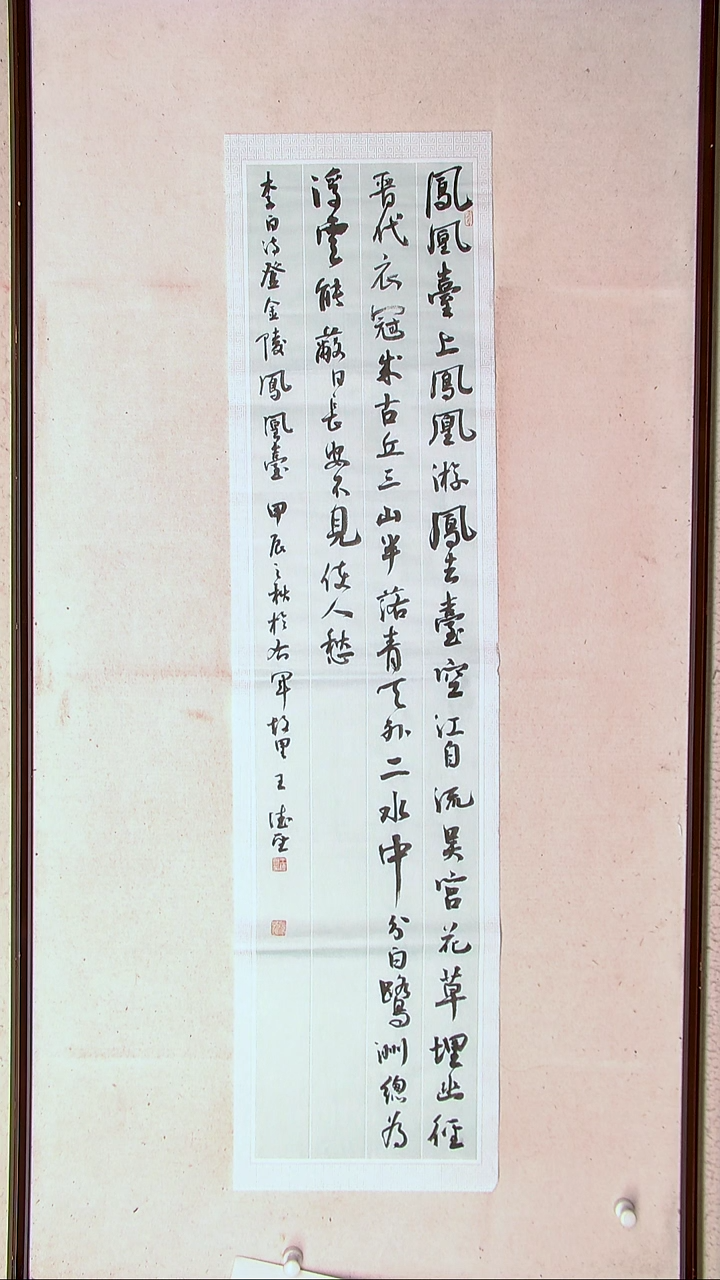 鳳凰臺上鳳凰游鳳去臺空江自流吴宫花草埋幽徑
晋代衣冠成古丘三山半落青天外二水中分白鷺洲總為
浮雲能蔽日長安不見使人愁
李白诗登金陵鳳凰臺甲辰之秋於右軍故里王